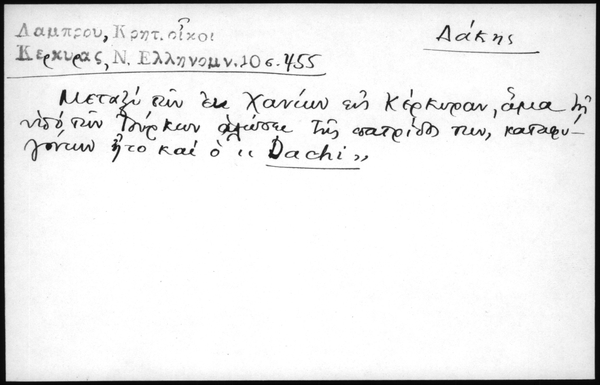 Λαμπρου, Κρητ. οἶκοι
Δάκης
Κερκυρας, Ν. Ελληνομν. 10 σ. 455
Μεταξύ τῶν ἐκ Χανίων εἰς Κέρκυραν, ἅμα τῇ
ὑπό τῶν Τούρκων ἁλώσει τῆς πατρίδος των, καταφυ-
γόντων ἦτο καί ὁ « Dachi »